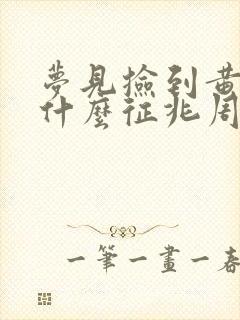 夢見撿到黃
什麼征兆周
一筆一畫一春